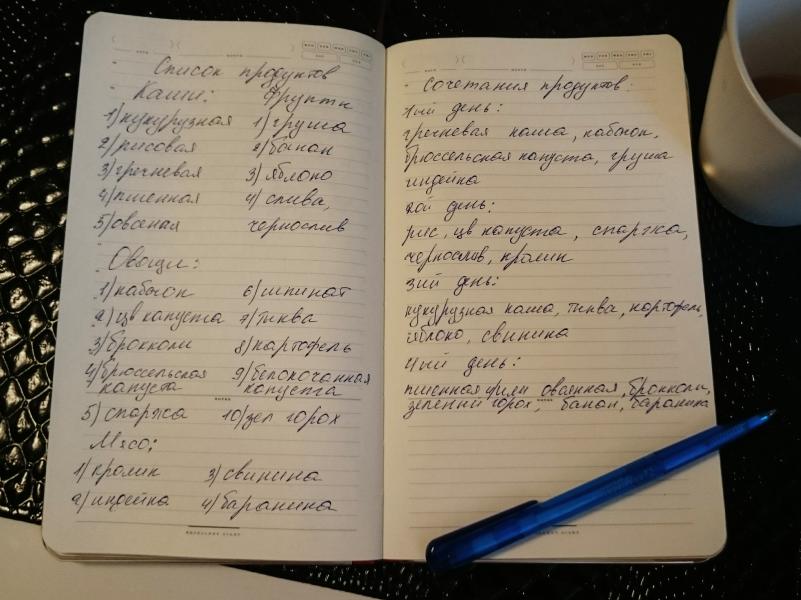 Список продуктов
Каши: Фрукты
1) кукурузная 1) груша
2) рисовая 2) банан
3) гречневая 3) яблоко
4) пшенная 4) слива,
5) овсяная чернослив
Овощи:
1) кабачок 6) шпинат
2) цв капуста 7) тыква
3) брокколи 8) картофель
4) брюссельская 9) белокочанная
капуста капуста
5) спаржа 10) зел горох
Мясо:
1) кролик 3) свинина
2) индейка 4) баранина
Сочетания продуктов:
1ый день:
гречневая каша, кабачок,
брюссельская капуста, груша
индейка
2ой день:
рис, цв капуста, спаржа,
чернослив, кролик
3ий день:
кукурузная каша, тыква, картофель,
яблоко, свинина
4ый день:
пшенная или овсянная, брокколи,
зеленый горох, банан, баранина